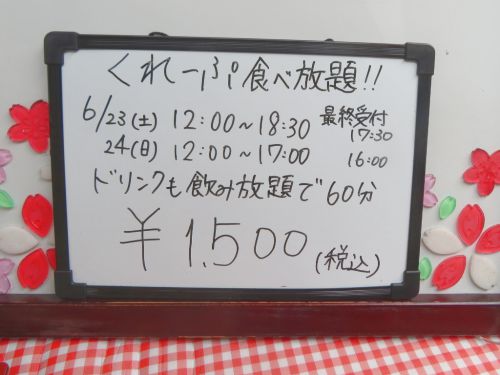 くれーぷ食べ放題!!
6/23(土) 12:00~18:30 最終受付 17:30
24(日) 12:00~17:00 16:00
ドリンクも飲み放題で60分
¥1,500(税込)